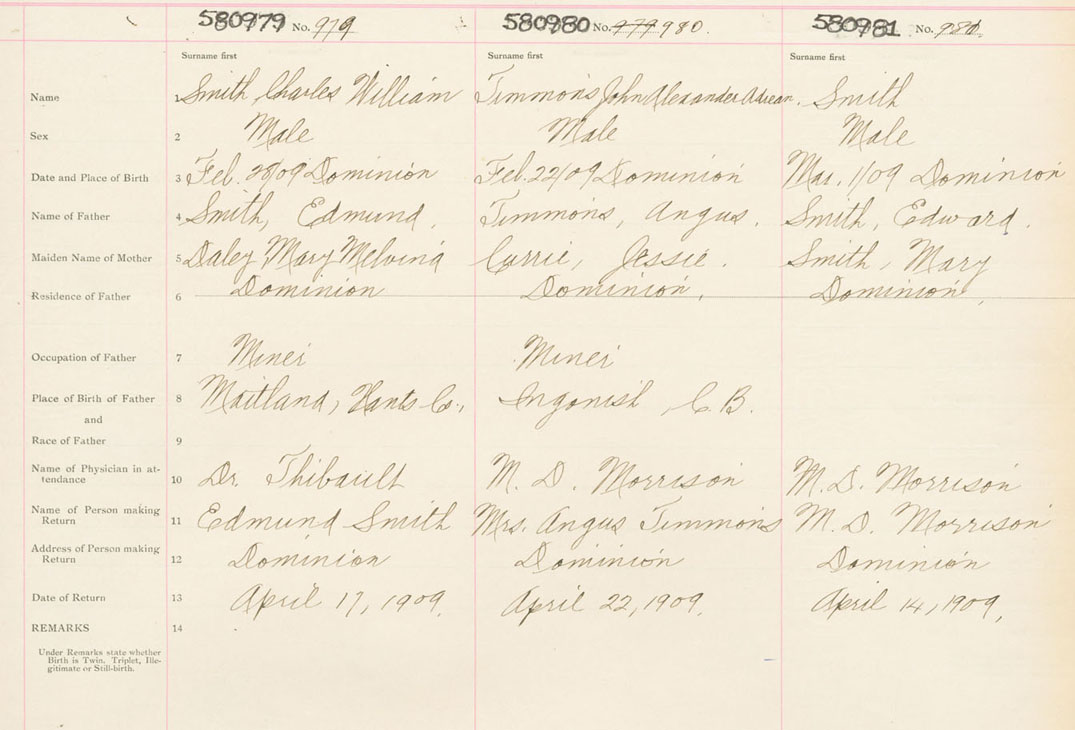 580979 No. 979 580980 No. 979 980. 580981 No. 980.
Surname first Surname first Surname first
Name 1 Smith, Charles William Timmons John Alexander Adrean. Smith
Sex 2 Male Male Male
Date and Place of Birth 3 Feb. 28/09 Dominion Feb. 22/09 Dominion Mar. 1/09 Dominion
Name of Father 4 Smith, Edmund. Timmons, Angus. Smith, Edward.
Maiden Name of Mother 5 Daley Mary Melvina Currie, Jessie. Smith, Mary
Residence of Father 6 Dominion Dominion. Dominion.
Occupation of Father 7 Miner Miner
Place of Birth of Father 8 Maitland, Hants Co., Ingonish, C.B.
and
Race of Father 9
Name of Physician in at-
tendance 10 Dr. Thibault M. D. Morrison M. D. Morrison
Name of Person making
Return 11 Edmund Smith Mrs. Angus Timmons M. D. Morrison
Address of Person making
Return 12 Dominion Dominion Dominion
Date of Return 13 April 17, 1909. April 22, 1909. April 14, 1909.
REMARKS 14
Under Remarks state whether
Birth is Twin, Triplet, Ille-
gitimate or Still-birth.